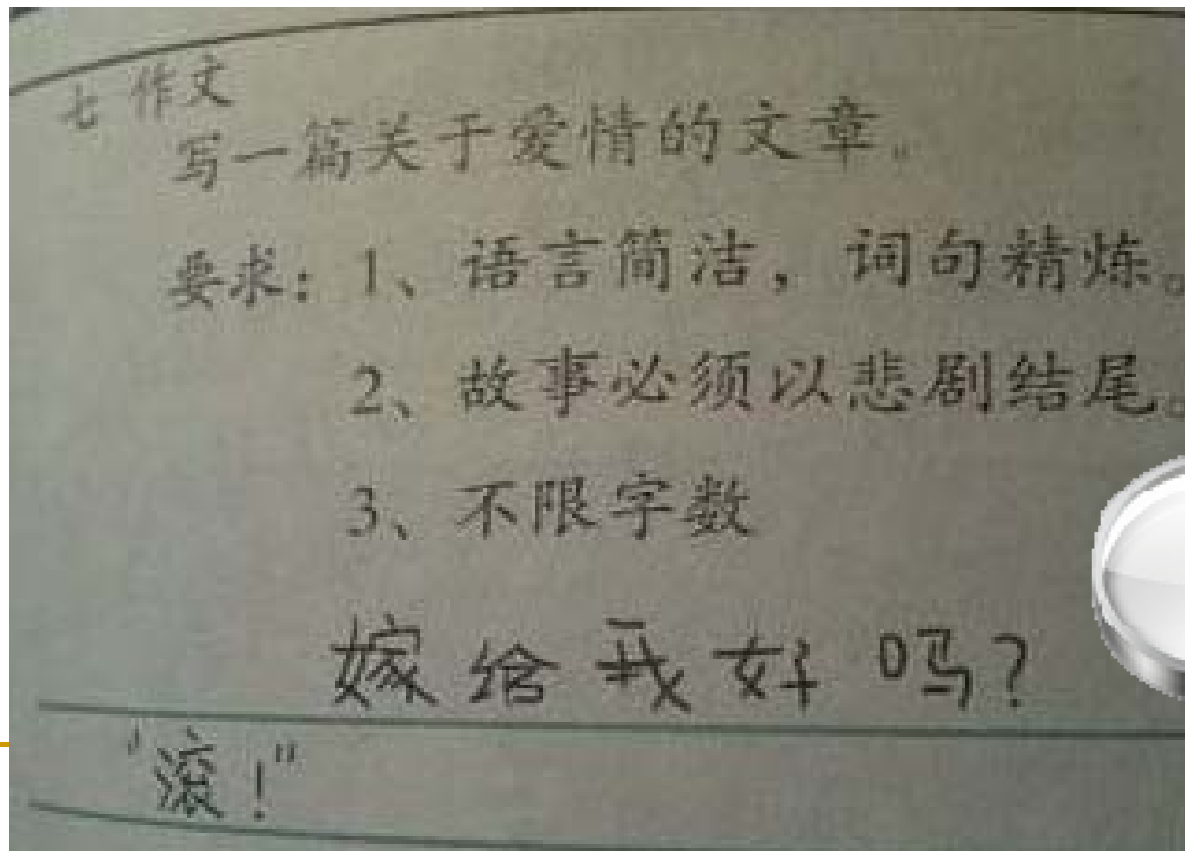 七 作文
写一篇关于爱情的文章。
要求：1、语言简洁，词句精炼。
2、故事必须以悲剧结尾。
3、不限字数
嫁给我好吗？
"滚！"